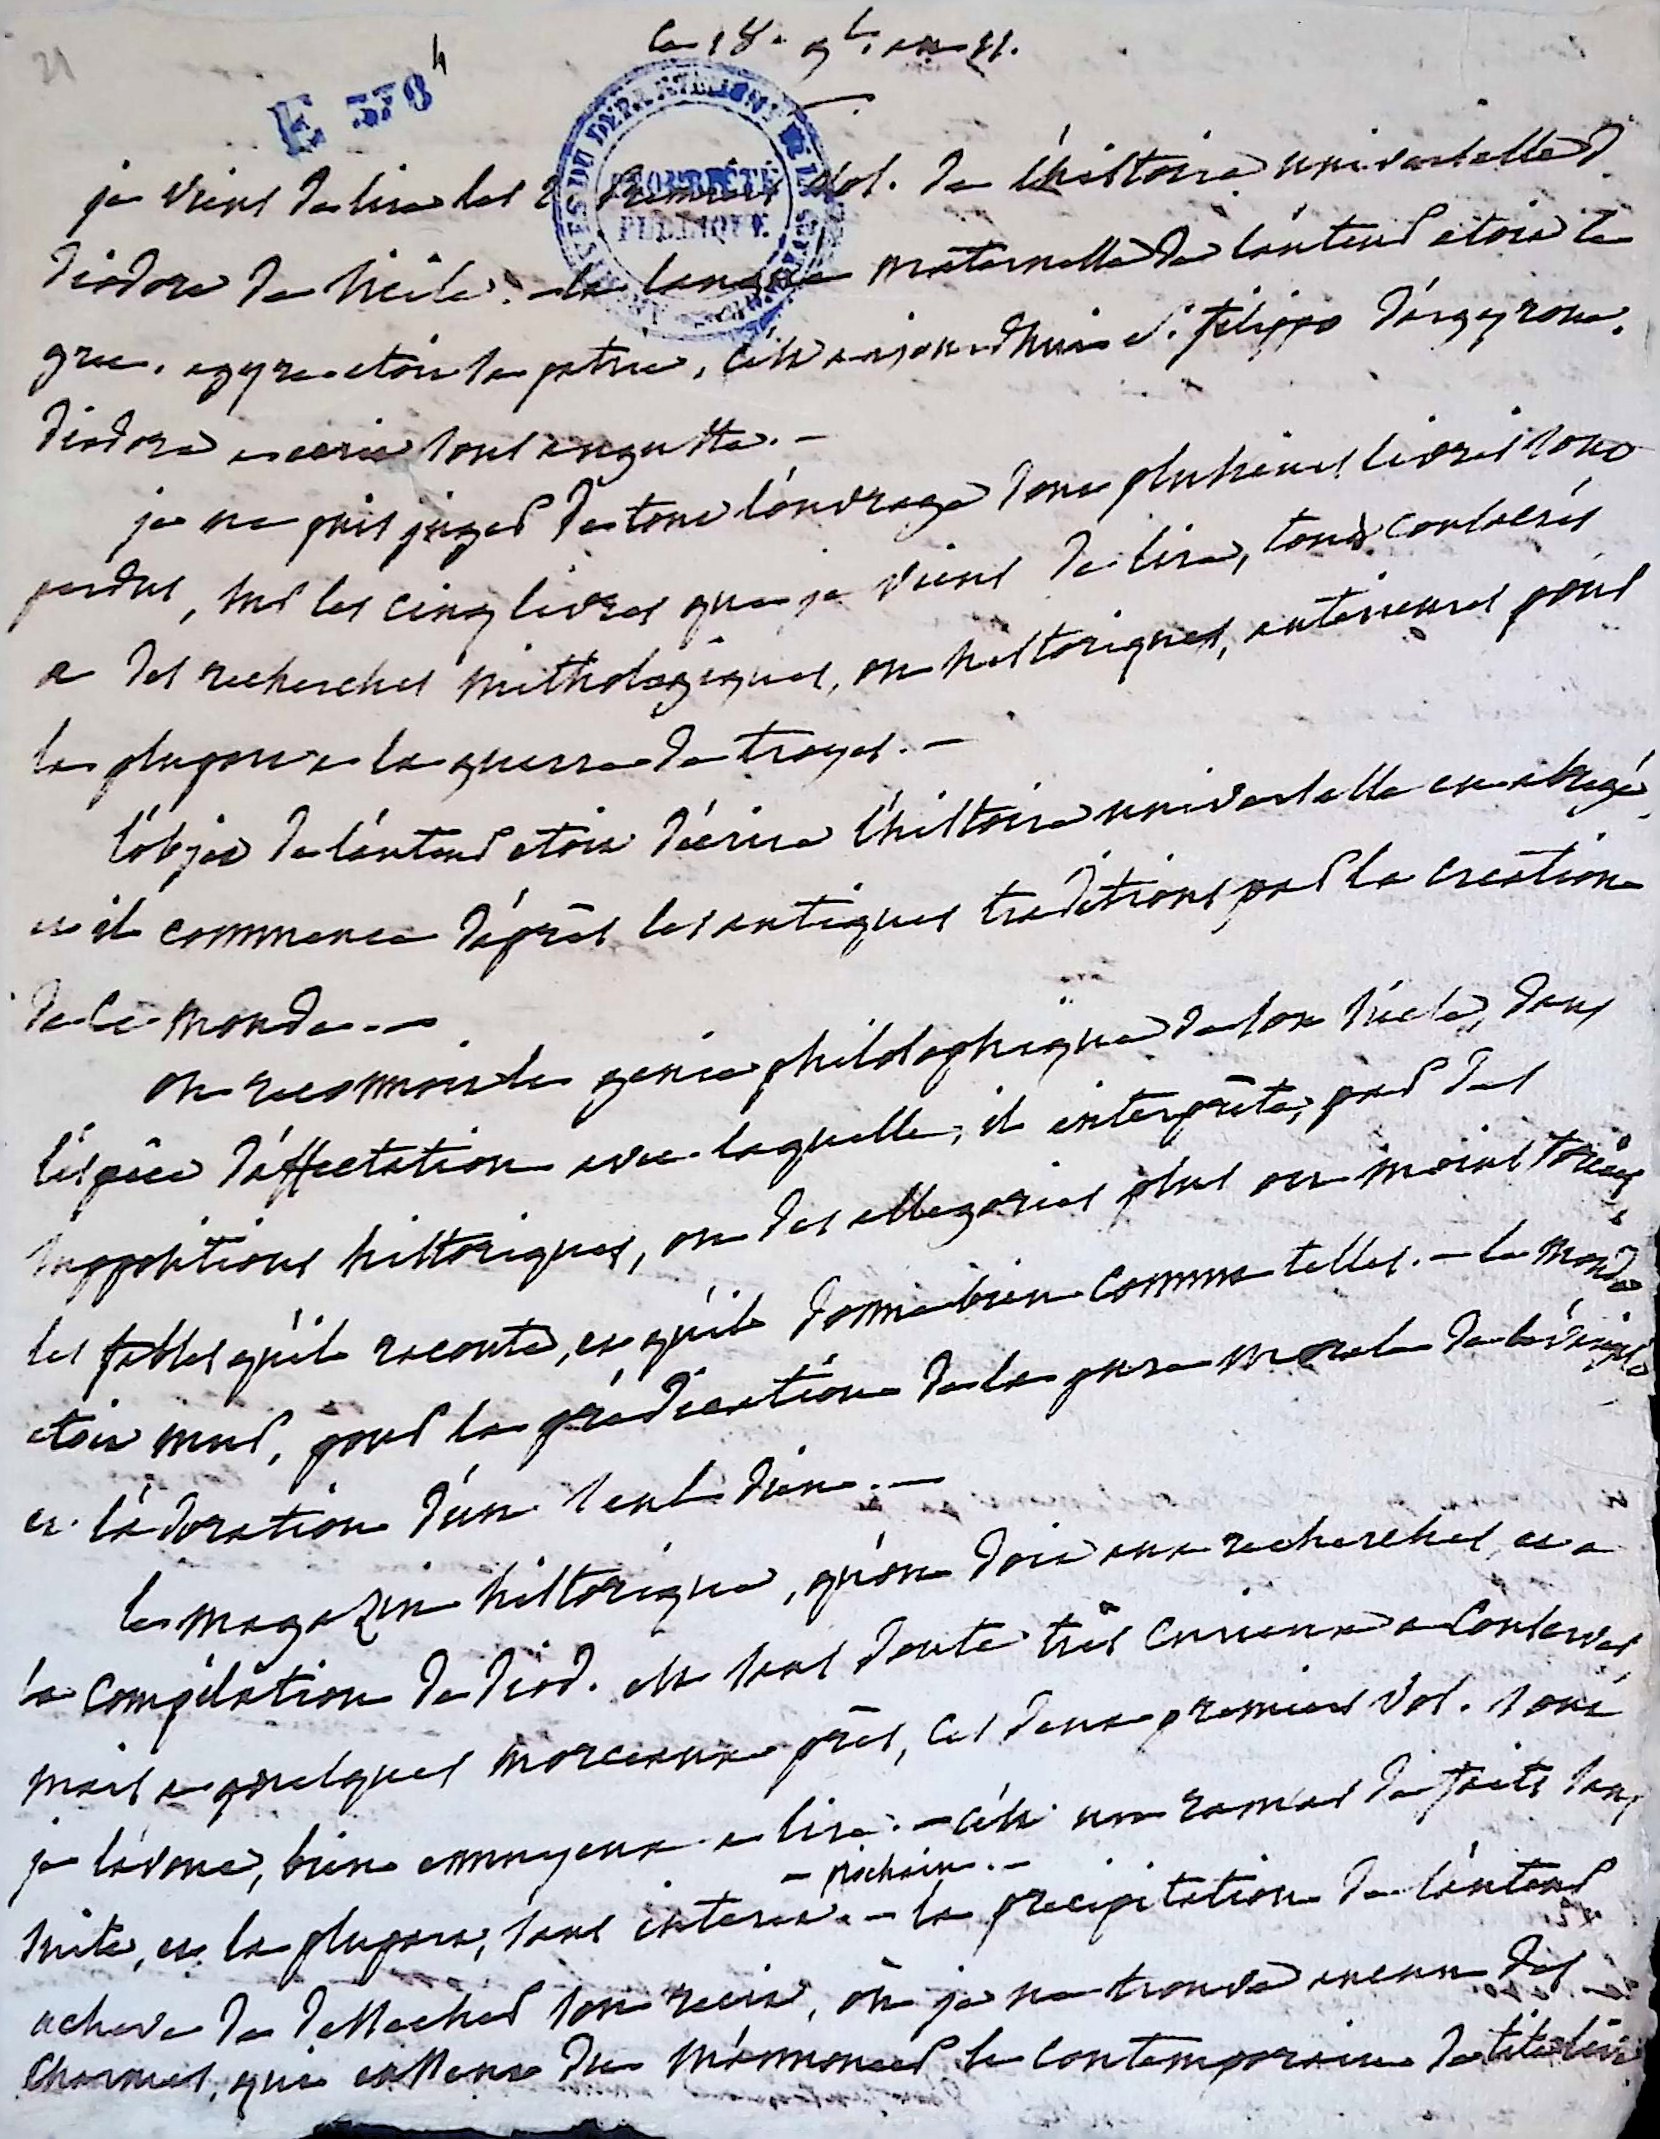 21
le 18. 9b. an 11.
E 378 4
ARCHIVES DU DÉPARTEMENT DE L'EURE
PROPRIÉTÉ PUBLIQUE
je viens de lire les 2 premiers vol. de l'histoire universelle de
diodore de sicile. - la langue maternelle de l'auteur etoit le
grec. agyre etoit sa patrie, c'est aujourdhui s. filippo d'argyrone.
diodore a ecrit sous auguste. -
je ne puis juger de tout l'ouvrage dont plusieurs livres sont
perdus, sur les cinq livres que je viens de lire, tous consacrés
a des recherches mithologiques, ou historiques, anterieures pour
la plupart a la guerre de troyes. -
l'objet de l'auteur etoit d'écrire l'histoire universelle en abregé
et il commence d'après les antiques traditions par la creation
de ce monde. -
on reconnoit le genie philosophique de son siecle, dans
l'espèce d'affectation avec laquelle, il interprète, par des
suppositions historiques, ou des allegories plus ou moins forcées
les fables qu'il raconte, et qu'il donne bien comme telles. - le monde
etoit mur, pour la prédication de la pure morale de l'évangile
et l'adoration d'un seul dieu. -
le magazin historique, qu'on doit aux recherches, et a
la compilation de diod. est sans doute très curieux a conserver,
mais a quelques morceaux près, ces deux premiers vol. sont
je l'avoue, bien ennuyeux a lire. - c'est un ramas de faits sans
- prochain. -
suite, et la plupart, sans interet. - la precipitation de l'auteur
acheve de dessecher son recit, où je ne trouve aucun des
charmes, qui auroient du m'annoncer le contemporain de tite live